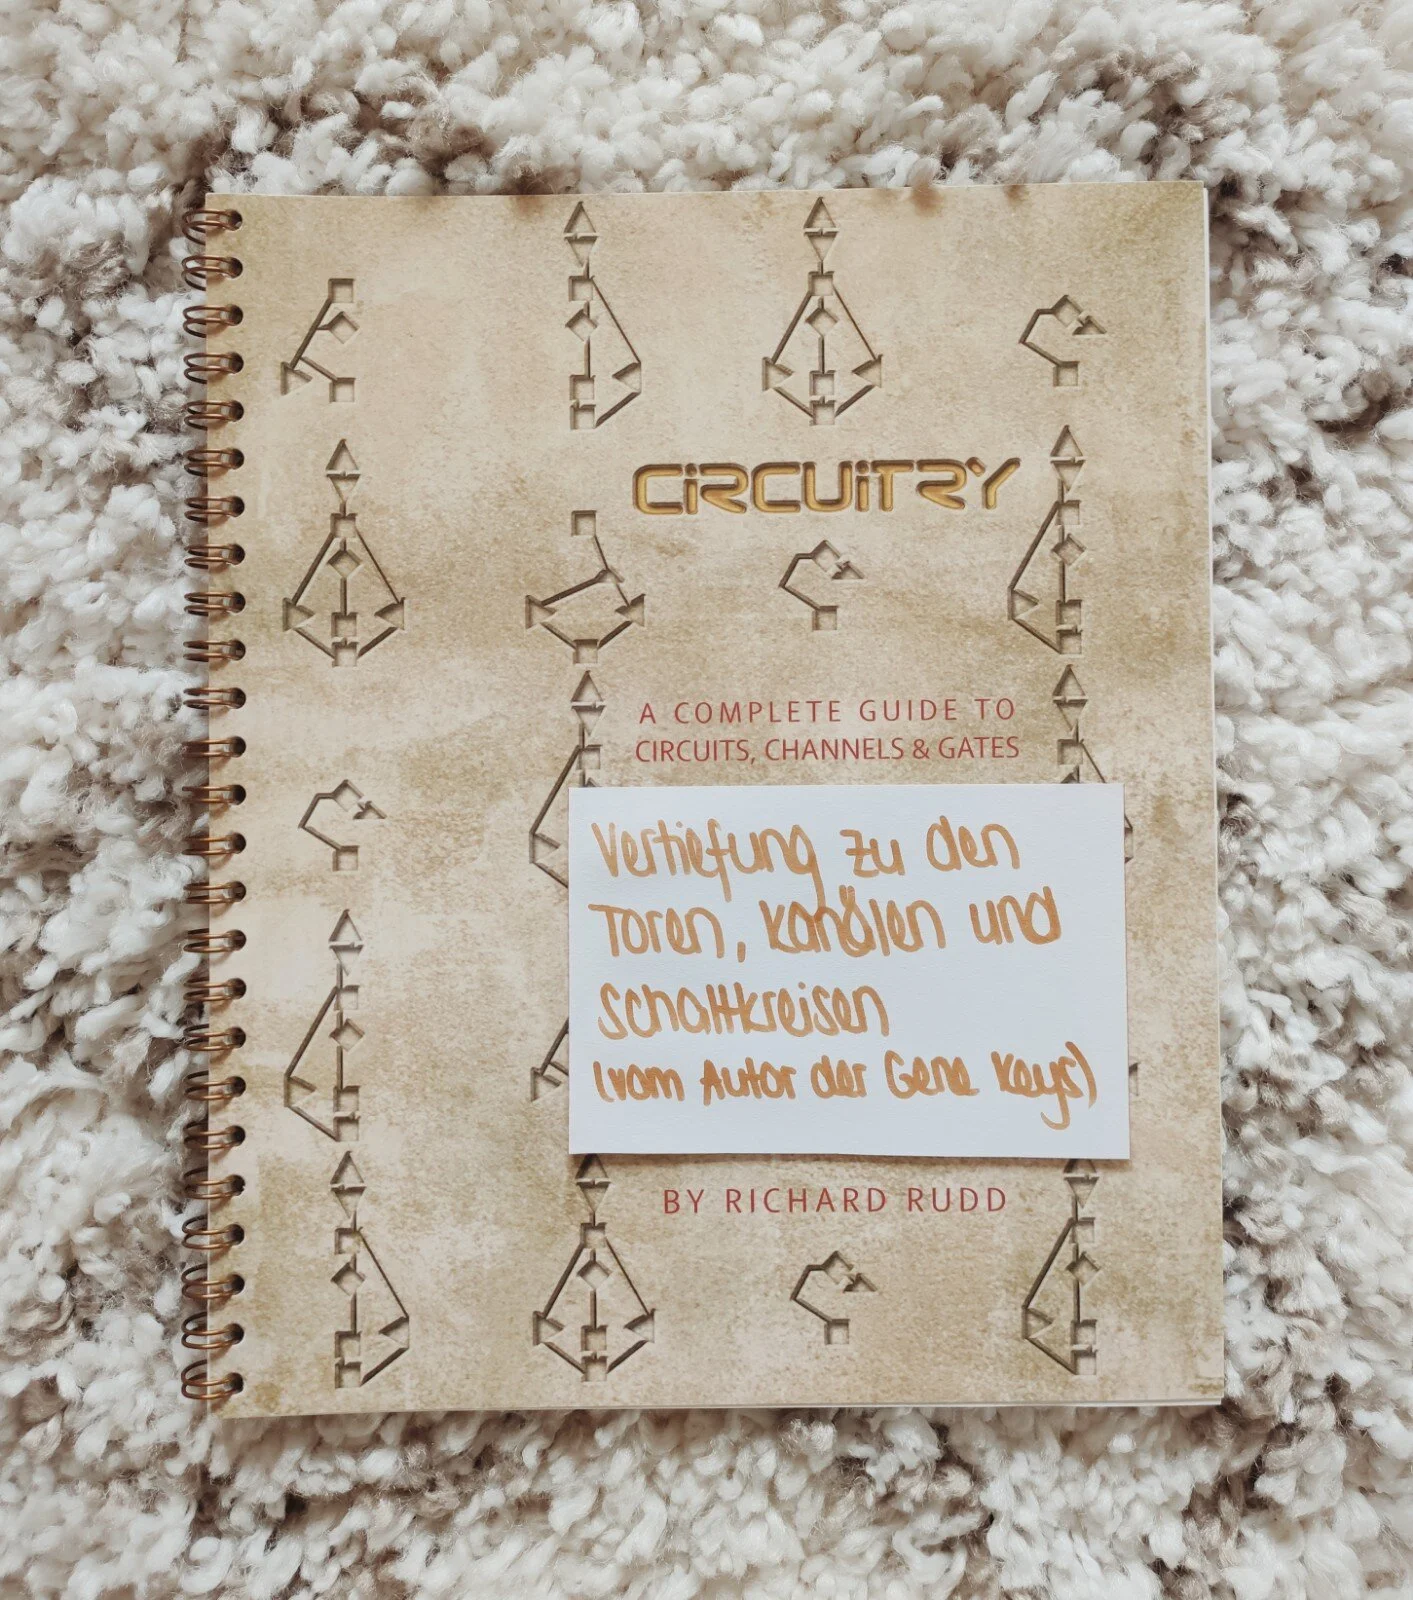 CIRCUITRY
A COMPLETE GUIDE TO
CIRCUITS, CHANNELS & GATES
Vertiefung zu den
Toren, Kanälen und
Schaltkreisen
(vom Autor der Gene Keys)
BY RICHARD RUDD